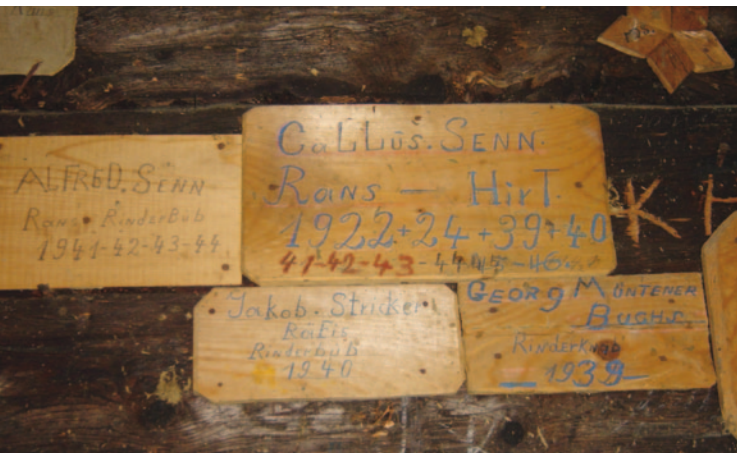 ALFRED. SENN
Rans. RinderBub
1941-42-43-44
CaLLūs. SENN.
Rans — HirT.
1922+24+39+40
41-42-43-44-45-46
Jakob. Stricker
Räfis
Rinderbub
1940
GEORG MÜNTENER
BUCHS.
RINDERKnab
1939
K